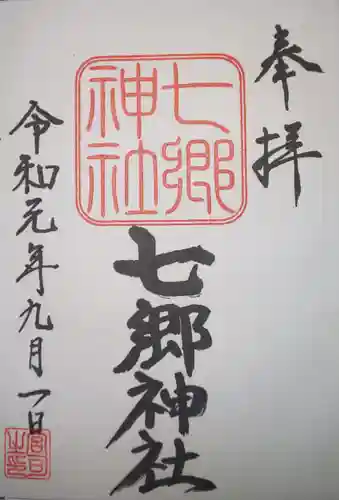 奉拝
七郷
神社
七郷神社
令和元年九月一日